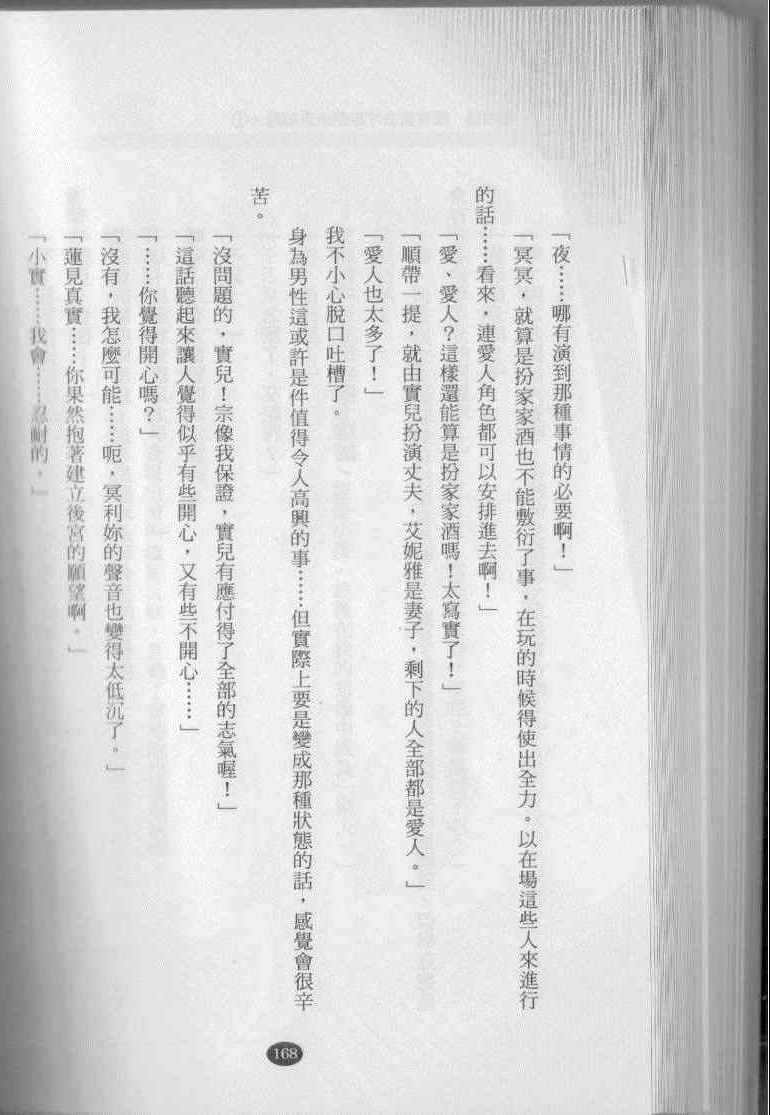 「夜……哪有演到那種事情的必要啊！」
「冥冥，就算是扮家家酒也不能敷衍了事，在玩的時候得使出全力。以在場這些人來進行
的話……看來，連愛人角色都可以安排進去啊！」
「愛、愛人？這樣還能算是扮家家酒嗎！太寫實了！」
「順帶一提，就由實兒扮演丈夫，艾妮雅是妻子，剩下的人全部都是愛人。」
「愛人也太多了！」
我不小心脫口吐槽了。
身為男性這或許是件值得令人高興的事……但實際上要是變成那種狀態的話，感覺會很辛
苦。
「沒問題的，實兒！宗像我保證，實兒有應付得了全部的志氣喔！」
「這話聽起來讓人覺得似乎有些開心，又有些不開心……」
「……你覺得開心嗎？」
「沒有，我怎麼可能……呃，冥利妳的聲音也變得太低沉了。」
「蓮見真實……你果然抱著建立後宮的願望啊。」
「小實……我會……忍耐的。」
168